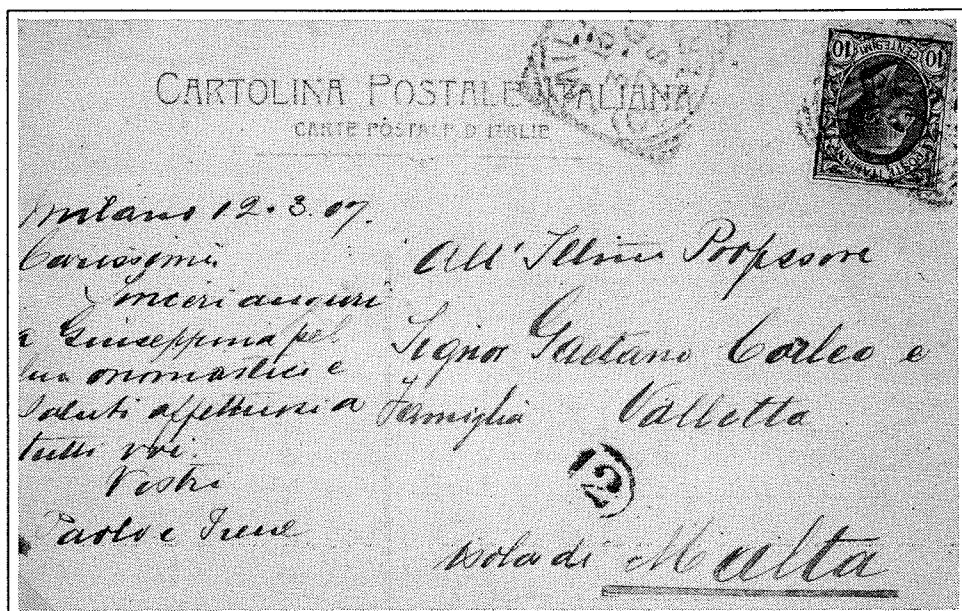 CARTOLINA POSTALE ITALIANA
CARTE POSTALE D'ITALIE
10 CENTESIMI 10
POSTE ITALIANE
Milano 12.3.07.
Carissimi
Sinceri auguri
a Giuseppina pel
suo onomastico e
saluti affettuosi a
tutti voi.
Vostri
Paolo e Irene
All' Illmo Professore
Signor Gaetano Corleo e
Famiglia Valletta
12
Isola di Malta